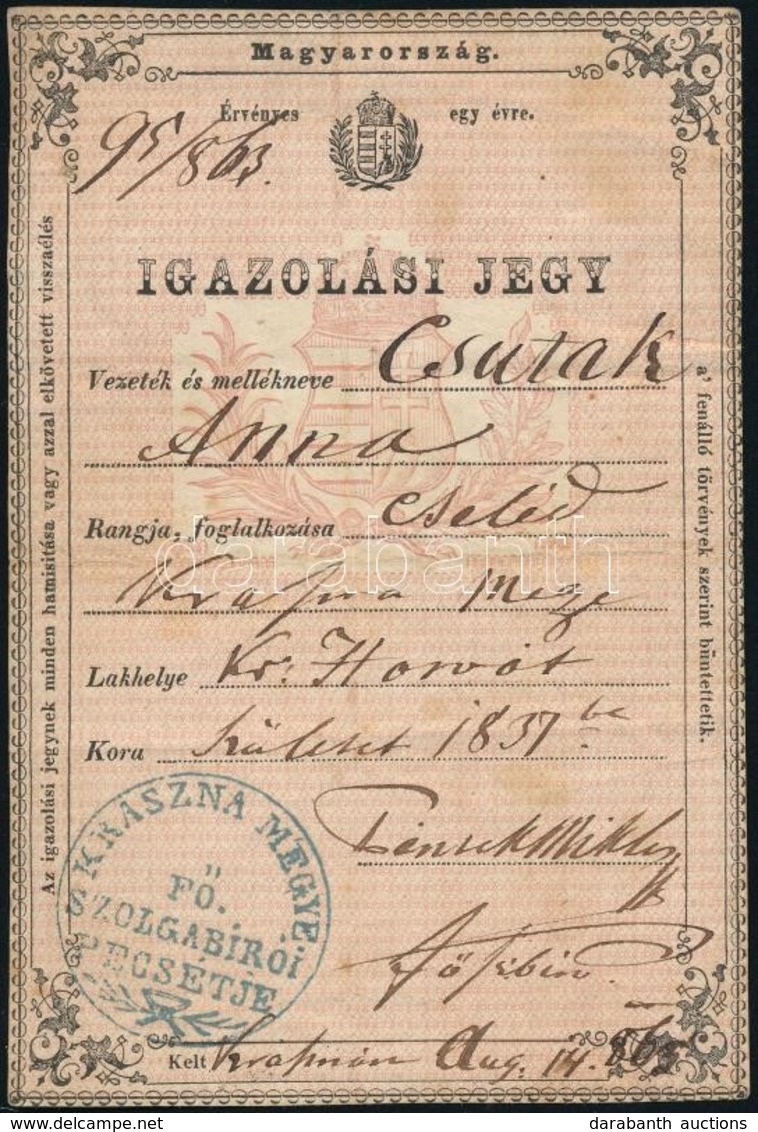 Magyarország.
Érvényes egy évre.
95/863.
IGAZOLÁSI JEGY
Vezeték és mellékneve Csutak
Anna
Rangja, foglalkozása cseléd
Kraszna megye
Lakhelye Kr: Horvát
Kora született 1837be
KRASZNA MEGYE.
FŐ.
SZOLGABÍRÓI
PECSÉTJE
Miklós
Kelt Krasznán Aug. 14. 863
Az igazolási jegynek minden hamisitása vagy azzal elkövetett visszaélés
a' fenálló törvények szerint büntettetik.
darabanth
darabanth auctions